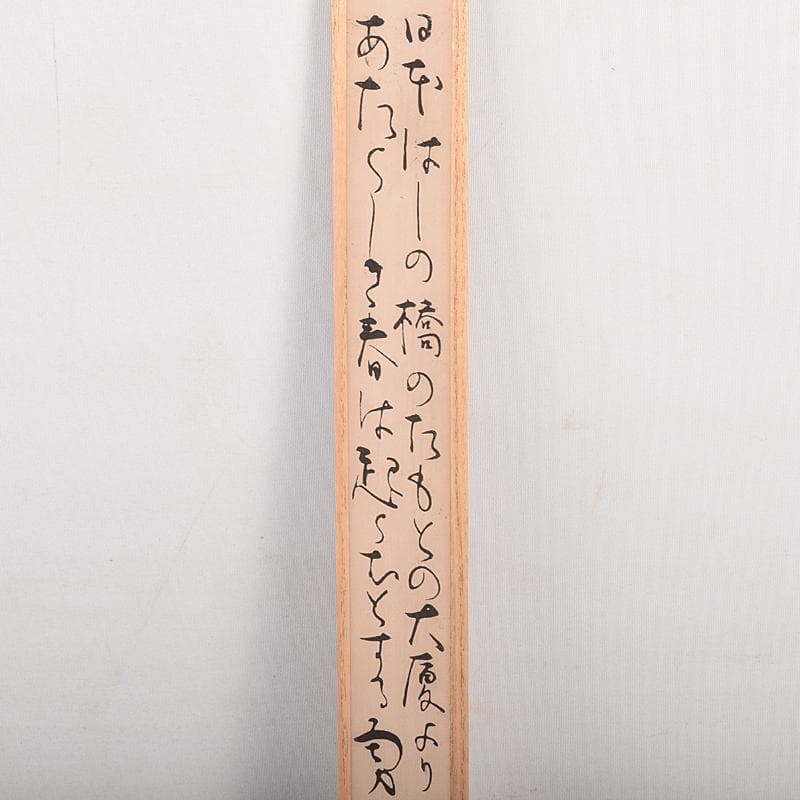 日本はしの橋のたもとの大厦より
あたらしき春は起らむとする 勇